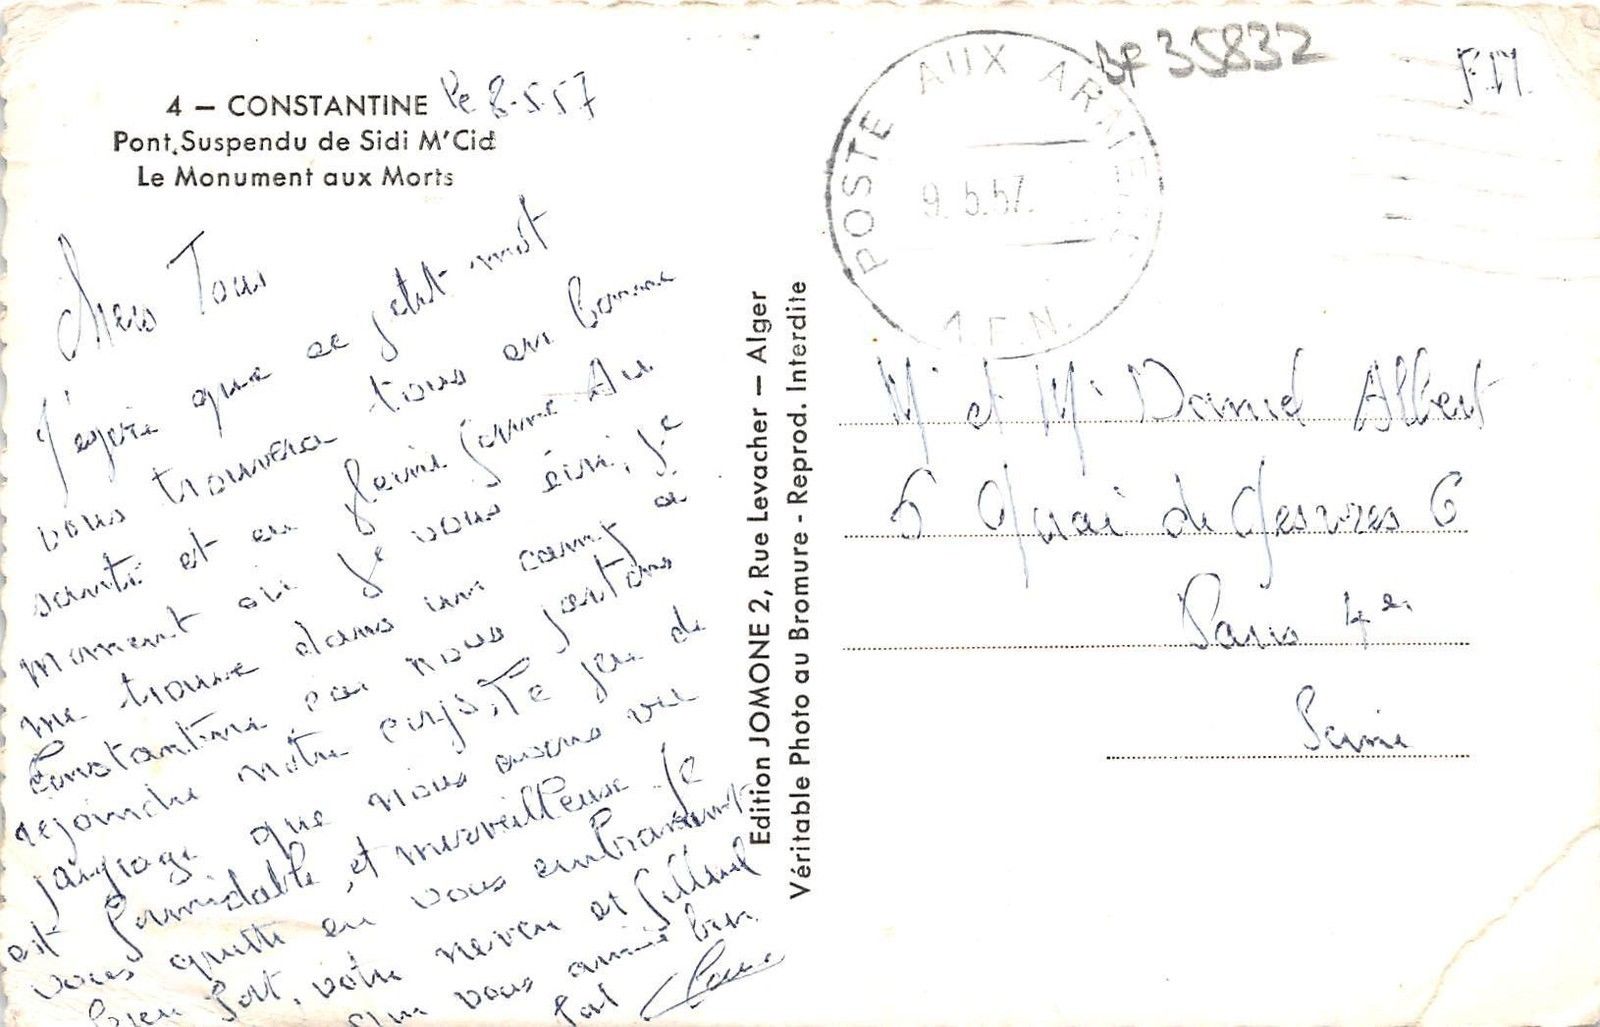 4 — CONSTANTINE
Pont Suspendu de Sidi M'Cid
Le Monument aux Morts
le 8-5-57
Chers Tous
J'espère que ce petit mot
vous trouvera tous en bonne
santé et en pleine forme Au
moment où je vous écris, je
me trouve dans un camp a
Constantine nous partons
rejoindre notre de
paysage que nous avons vu
est formidable, et merveilleuse Je
vous quitte en vous embrassant
bien fort, votre neveu et filleul
qui vous aime bien.
Edition JOMONE 2, Rue Levacher — Alger
Véritable Photo au Bromure - Reprod. Interdite
POSTE AUX ARMEES
9.5.57.
A.F.N.
BF 35832
F.M.
Mr et Me Daniel Albert
6 Quai de Gesvres 6
Paris 4e.
Seine